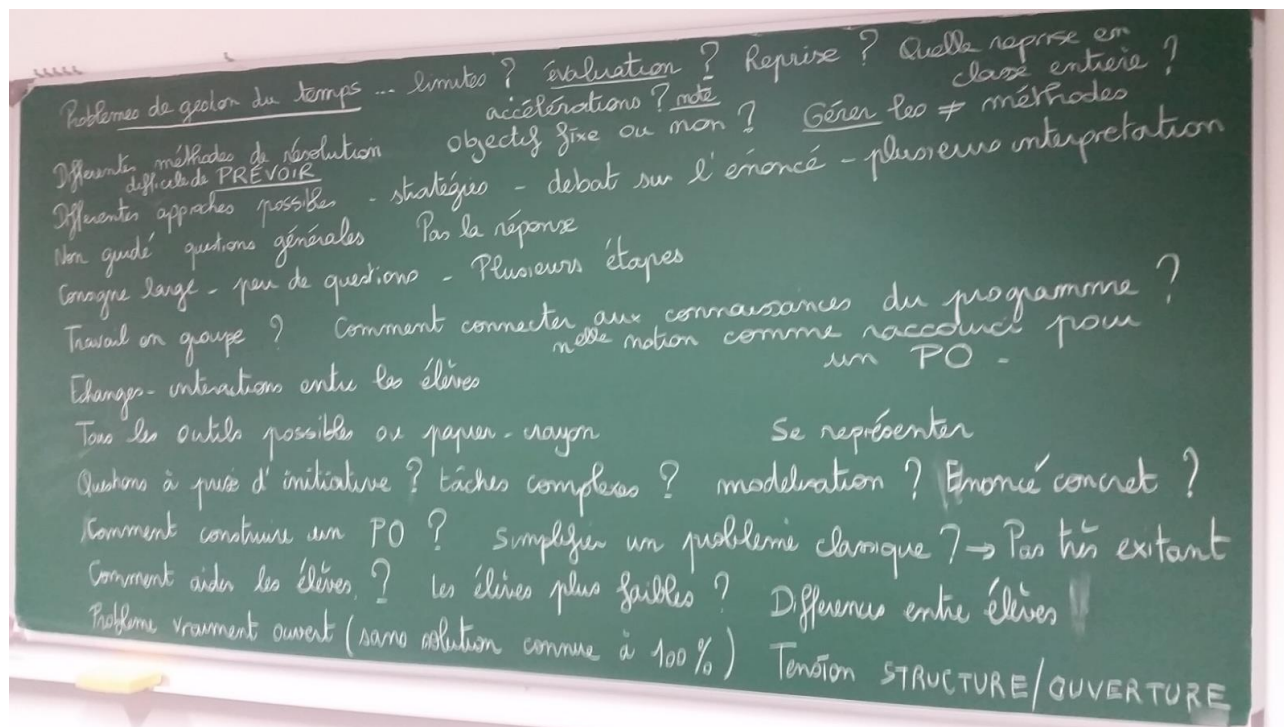 Problèmes de gestion du temps ... limites ? évaluation ? Reprise ? Quelle reprise en classe entière ?
accélérations ? note
Différentes méthodes de résolution objectif fixe ou non ? Gérer les ≠ méthodes
difficile de PRÉVOIR
Différentes approches possibles - stratégies - debat sur l'énoncé - plusieurs interpretation
Non guidé questions générales Pas la réponse
Consigne large - peu de questions - Plusieurs étapes
Travail en groupe ? Comment connecter aux connaissances du programme ?
nelle notion comme raccourci pour
un PO -
Echanges - interactions entre les élèves
Tous les outils possibles ou papier-crayon Se représenter
Questions à prise d'initiative ? tâches complexes ? modelisation ? Enoncé concret ?
Comment construire un PO ? Simplifier un problème classique ? → Pas très exitant
Comment aider les élèves ? Les élèves plus faibles ? Differences entre élèves
Problème vraiment ouvert (sans solution connue à 100 %) Tension STRUCTURE/OUVERTURE